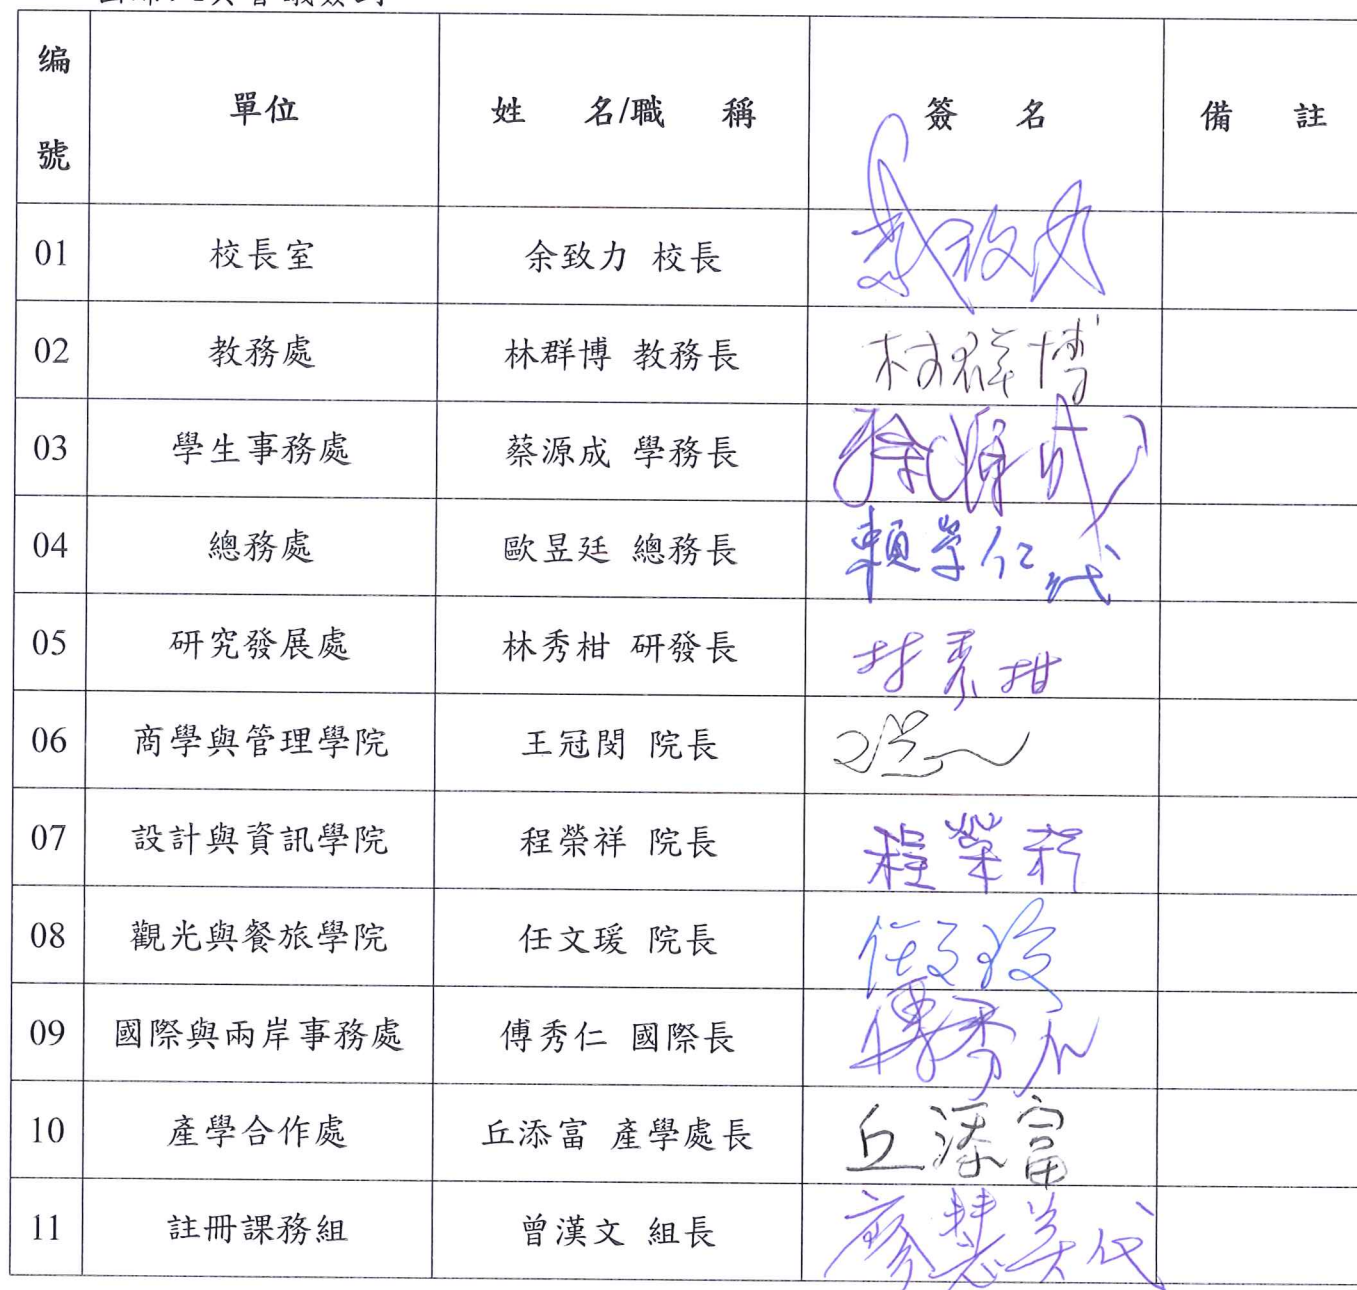 編號 單位 姓 名/職 稱 簽 名 備 註
01 校長室 余致力 校長 余致力
02 教務處 林群博 教務長 林群博
03 學生事務處 蔡源成 學務長
04 總務處 歐昱廷 總務長 賴學仁代
05 研究發展處 林秀柑 研發長 林秀柑
06 商學與管理學院 王冠閔 院長
07 設計與資訊學院 程榮祥 院長 程榮祥
08 觀光與餐旅學院 任文瑗 院長 任文瑗
09 國際與兩岸事務處 傅秀仁 國際長 傅秀仁
10 產學合作處 丘添富 產學處長 丘添富
11 註冊課務組 曾漢文 組長 廖慧美代